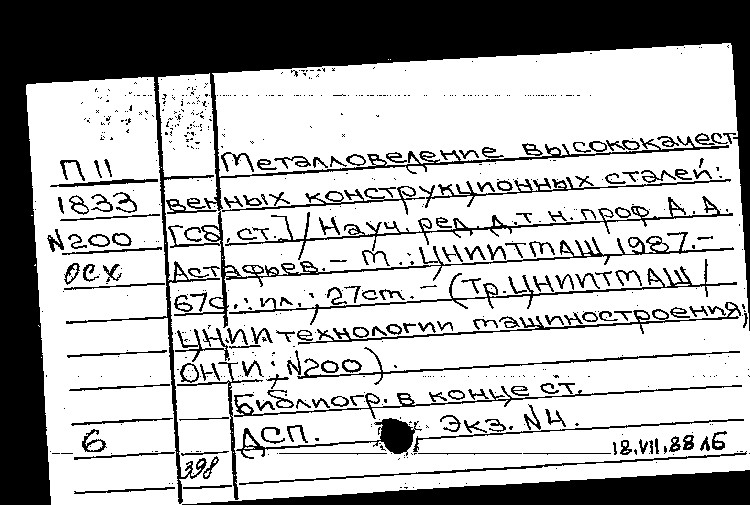 П 11 Металловедение высококачест-
1833 венных конструкционных сталей:
N200 [Сб. ст.] / Науч. ред. д. т. н. проф. А. А.
осх Астафьев. – М.: ЦНИИТМАШ, 1987. –
67с.: ил.; 27см. – (Тр. ЦНИИТМАШ /
ЦНИИ технологии машиностроения;
ОНТИ; N200).
Библиогр. в конце ст.
6 ДСП. Экз. N4.
398 18.VII.88 лб